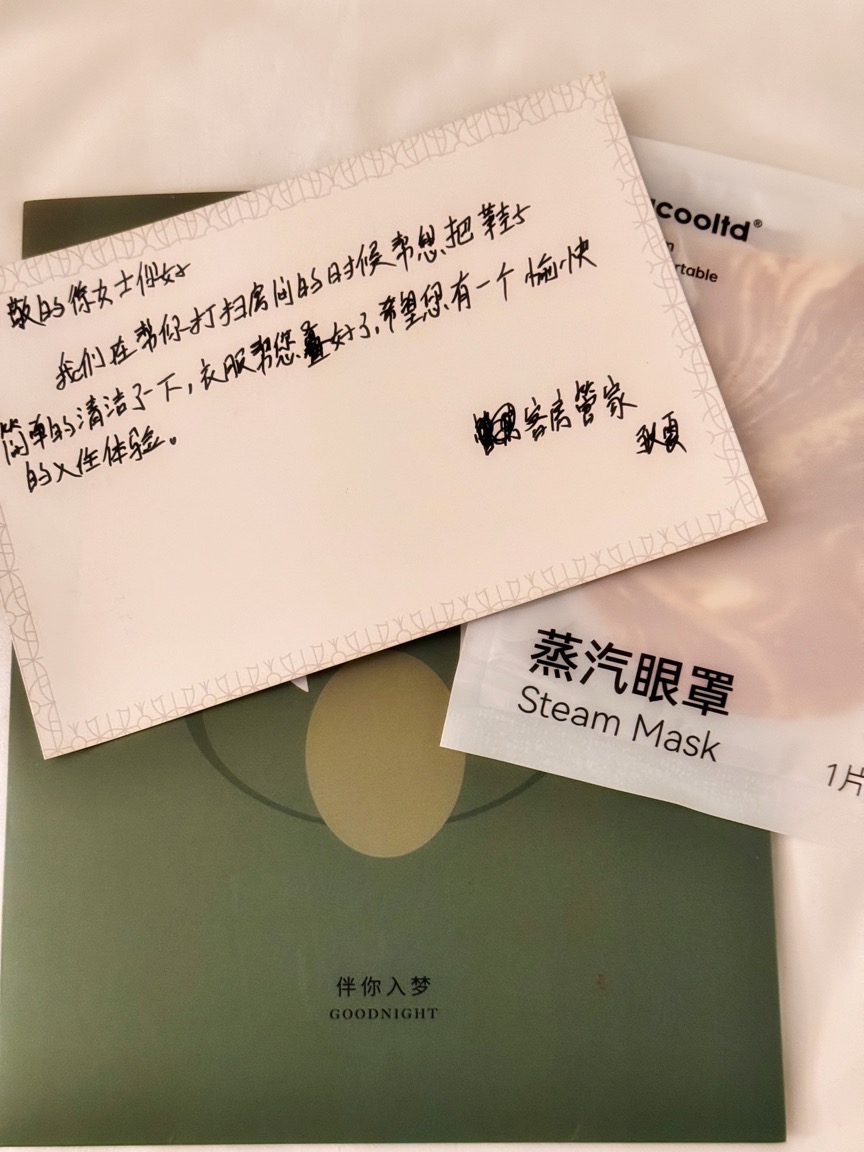 敬的徐女士你好
我们在帮你打扫房间的时候帮您把鞋子
简单的清洁了一下，衣服帮您叠好了，希望您有一个愉快
的入住体验。
客房管家
秋夏
cooltd®
rtable
蒸汽眼罩
Steam Mask
1片
伴你入梦
GOODNIGHT